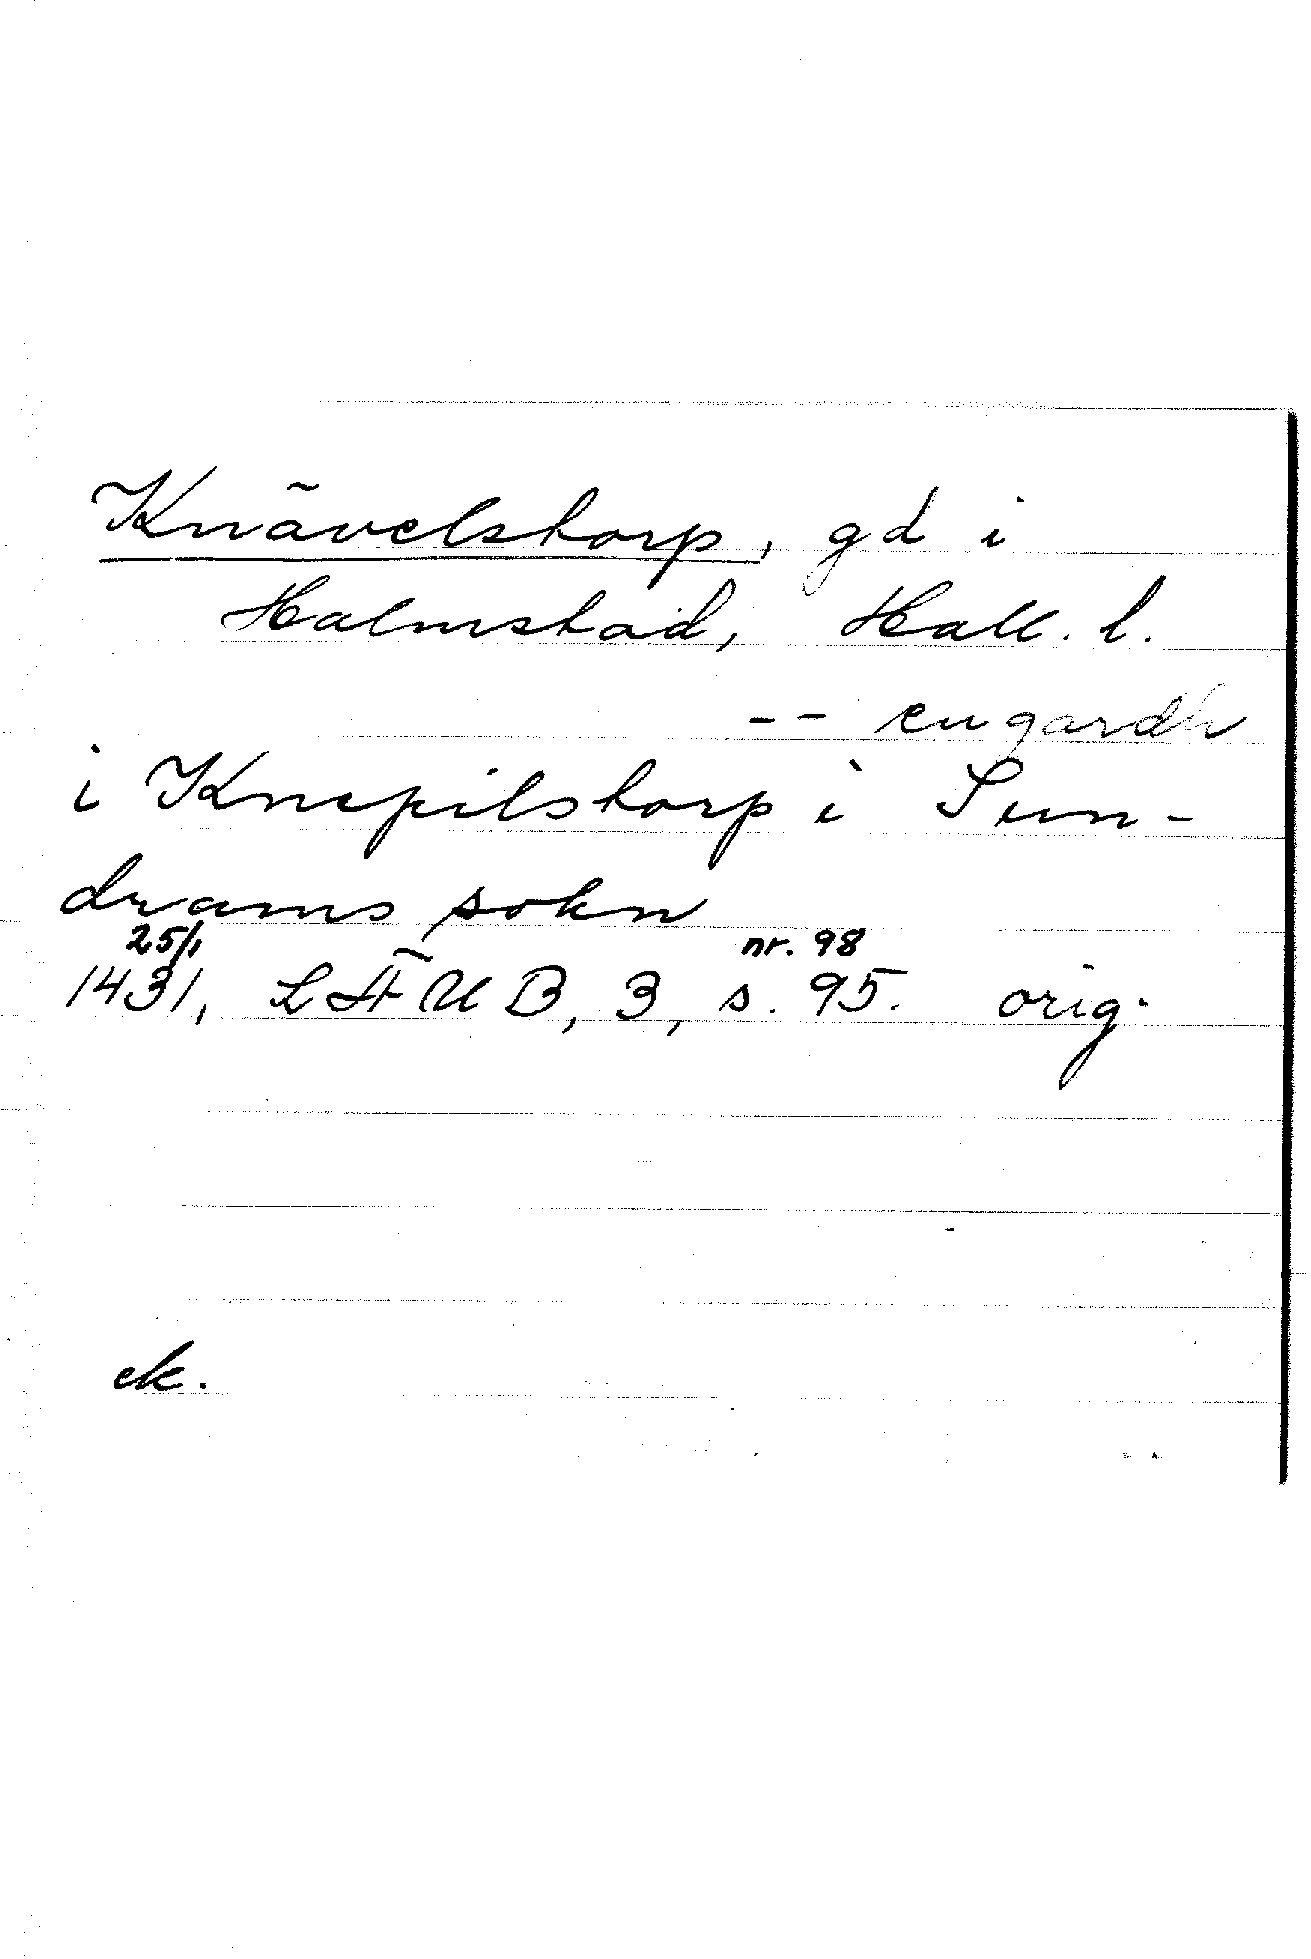 Knävelstorp, gd i
Halmstad, Hall. l.
-- en gardh
i Knepilstorp i Sun-
drams sokn
25/1 nr. 98
1431, LÄUB, 3, s. 95. orig.
ek.